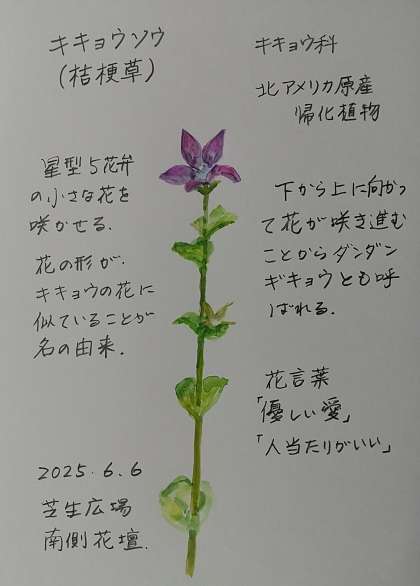 キキョウソウ
(桔梗草)
星型5花弁
の小さな花を
咲かせる.
花の形が.
キキョウの花に
似ていることが
名の由来.
2025.6.6
芝生広場
南側花壇.
キキョウ科
北アメリカ原産
帰化植物
下から上に向かっ
て花が咲き進む
ことからダンダン
ギキョウとも呼
ばれる.
花言葉
「優しい愛」
「人当たりがいい」